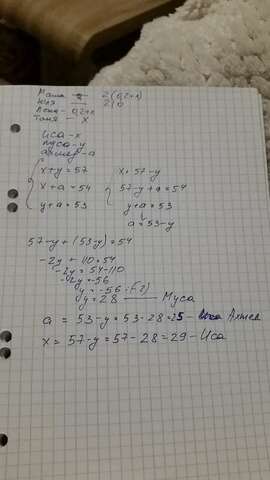 Маша — 2(0,2+x)
Юля — 2(0
Лена - 0,2+x
Таня — x
Иса - x
Муса - y
Ахмед - a
x+y = 57
x+a = 54
y+a = 53
x = 57-y
57-y+a = 54
y+a = 53
a = 53-y
57-y+(53-y) = 54
-2y + 110 = 54
-2y = 54-110
-2y = -56
y = -56:(-2)
y = 28 —— Муса
a = 53-y = 53-28 = 25 - Ахмед
x = 57-y = 57-28 = 29 - Иса